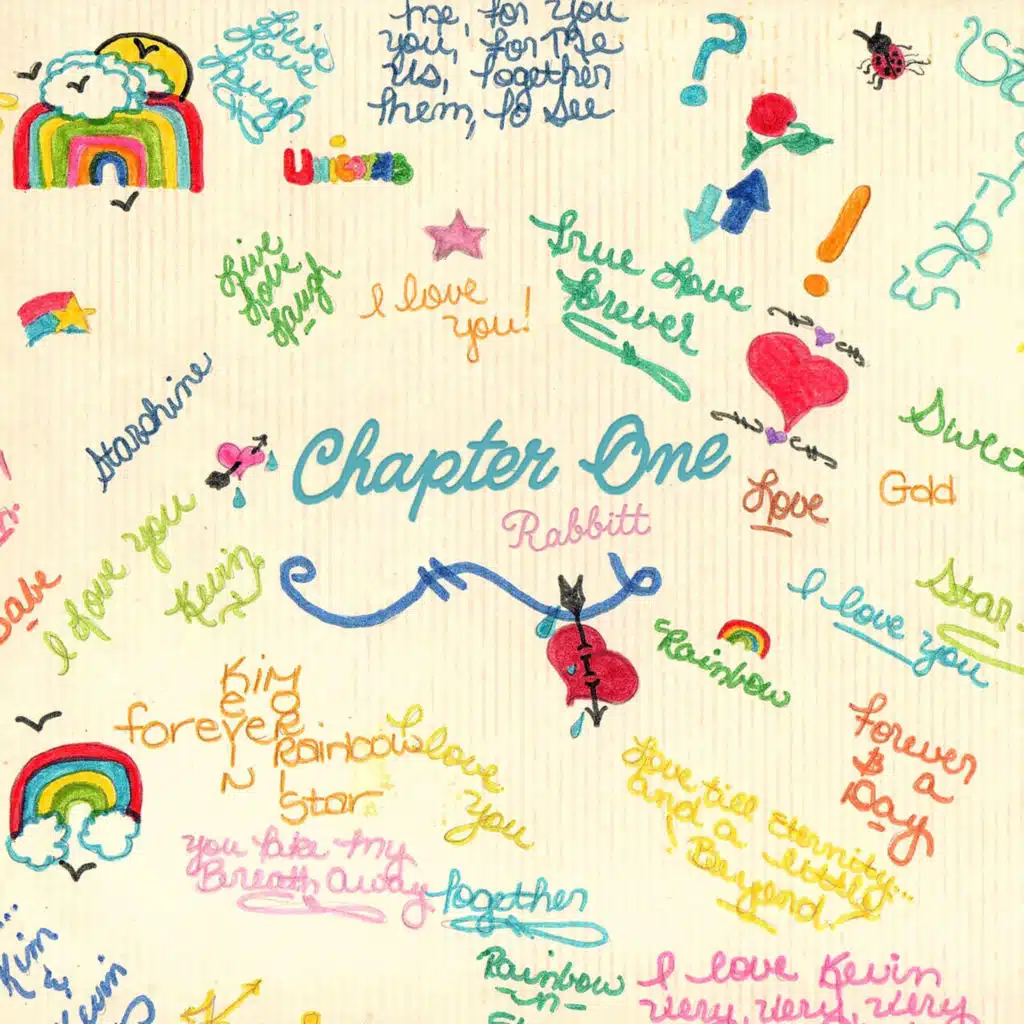 Live
Love
Laugh
me, for you
you, for me
us, together
them, to see
Unicorns
Live
Love
Laugh
I love
you!
True Love
Forever
Starshine
Chapter One
Rabbitt
Love
Gold
Swee
I love you
Kevin
Babe
I love you
Star
Rainbow
Kim
forever
Kevin
Rainbow
Star
I love
you
Forever
& a
Day
Love till Eternity...
and a little
Beyond
you take my
Breath Away
together
Kim
&
Kevin
Rainbow
-n-
I love Kevin
very, very, very